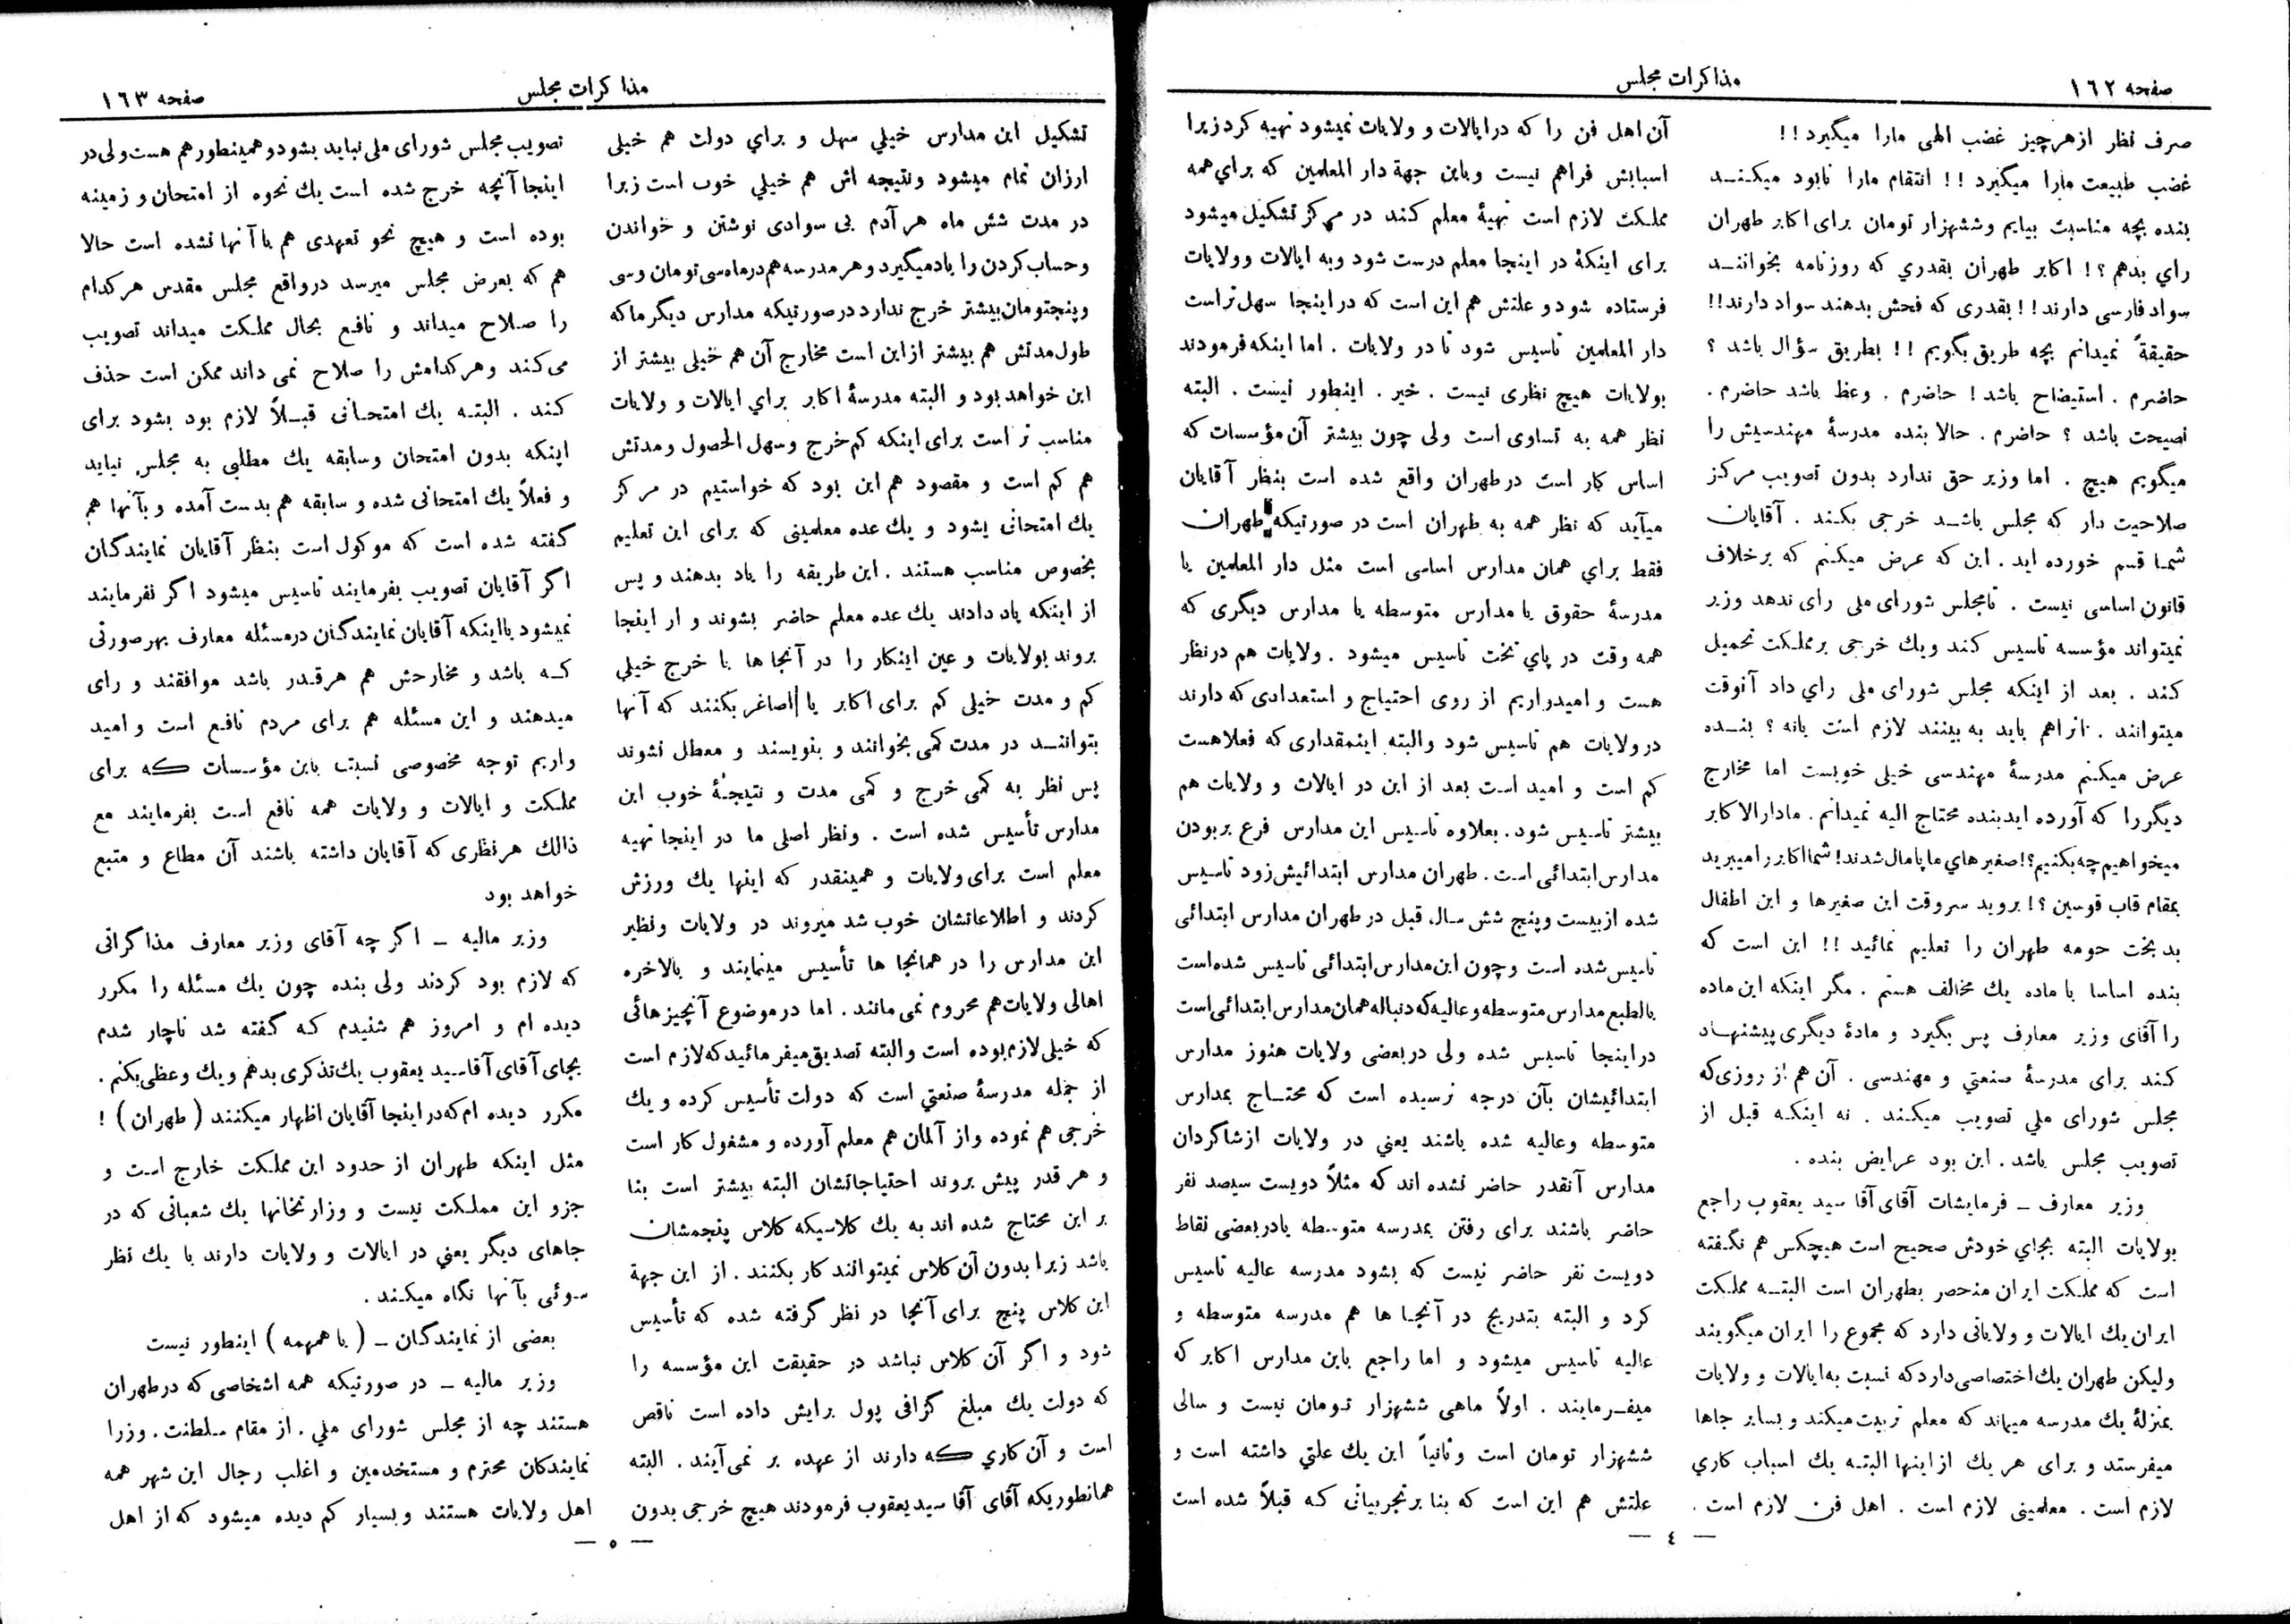 صفحه ١٦٢
مذاکرات مجلس
صرف نظر ازهرچیز غضب الهی مارا میگیرد !!
غضب طبیعت مارا میگیرد !! انتقام مارا نابود میکنـد
بنده بچه مناسبت بیایم وششهزار تومان برای اکابر طهران
رای بدهم ؟! اکابر طهران بقدری که روزنامه بخوانند
سواد فارسی دارند !! بقدری که فحش بدهند سواد دارند!!
حقیقةً نمیدانم بچه طریق بگویم !! بطریق سؤال باشد ؟
حاضرم . استیضاح باشد ! حاضرم . وعظ باشد حاضرم .
نصیحت باشد ؟ حاضرم . حالا بنده مدرسهٔ مهندسیش را
میگویم هیچ . اما وزیر حق ندارد بدون تصویب مرکز
صلاحیت دار که مجلس باشد خرجی بکند . آقایان
شما قسم خورده اید . این که عرض میکنم که برخلاف
قانون اساسی نیست . تامجلس شورای ملی رای ندهد وزیر
نمیتواند مؤسسه تاسیس کند ویك خرجی برمملکت تحمیل
کند . بعد از اینکه مجلس شورای ملی رای داد آنوقت
میتوانند . آنراهم باید به بینند لازم است یانه ؟ بنده
عرض میکنم مدرسهٔ مهندسی خیلی خوبست اما مخارج
دیگررا که آورده اید بنده محتاج الیه نمیدانم . مادارالاکابر
میخواهیم چه بکنیم؟! صغیرهای ما پامال شدند! شما اکابر را میبرید
بمقام قاب قوسین ؟! بروید سروقت این صغیرها و این اطفال
بدبخت حومه طهران را تعلیم نمائید !! این است که
بنده اساسا با ماده یك مخالف هستم . مگر اینکه این ماده
را آقای وزیر معارف پس بگیرد و مادهٔ دیگری پیشنهاد
کند برای مدرسهٔ صنعتی و مهندسی . آن هم از روزی که
مجلس شورای ملی تصویب میکند . نه اینکه قبل از
تصویب مجلس باشد . این بود عرایض بنده .
وزیر معارف ـ فرمایشات آقای آقا سید یعقوب راجع
بولایات البته بجای خودش صحیح است هیچکس هم نگفته
است که مملکت ایران منحصر بطهران است البته مملکت
ایران یك ایالات و ولایاتی دارد که مجموع را ایران میگویند
ولیکن طهران یك اختصاصی دارد که نسبت به ایالات و ولایات
بمنزلهٔ یك مدرسه میماند که معلم تربیت میکند و بسایر جاها
میفرستد و برای هر یك از اینها البته یك اسباب کاری
لازم است . معلمینی لازم است . اهل فن لازم است .
آن اهل فن را که در ایالات و ولایات نمیشود تهیه کرد زیرا
اسبابش فراهم نیست وباین جهة دار المعلمین که برای همه
مملکت لازم است تهیهٔ معلم کند در مرکز تشکیل میشود
برای اینکهٔ در اینجا معلم درست شود وبه ایالات وولایات
فرستاده شود و علتش هم این است که در اینجا سهل تر است
دار المعلمین تاسیس شود تا در ولایات . اما اینکه فرمودند
بولایات هیچ نظری نیست . خیر . اینطور نیست . البته
نظر همه به تساوی است ولی چون بیشتر آن مؤسسات که
اساس کار است در طهران واقع شده است بنظر آقایان
میآید که نظر همه به طهران است در صورتیکه طهران
فقط برای همان مدارس اساسی است مثل دار المعلمین یا
مدرسهٔ حقوق یا مدارس متوسطه یا مدارس دیگری که
همه وقت در پای تخت تاسیس میشود . ولایات هم در نظر
هست و امیدواریم از روی احتیاج و استعدادی که دارند
در ولایات هم تاسیس شود والبته اینمقداری که فعلا هست
کم است و امید است بعد از این در ایالات و ولایات هم
بیشتر تاسیس شود . بعلاوه تاسیس این مدارس فرع بر بودن
مدارس ابتدائی است . طهران مدارس ابتدائیش زود تاسیس
شده از بیست وپنج شش سال قبل در طهران مدارس ابتدائی
تاسیس شده است و چون این مدارس ابتدائی تاسیس شده است
بالطبع مدارس متوسطه و عالیه که دنباله همان مدارس ابتدائی است
در اینجا تاسیس شده ولی در بعضی ولایات هنوز مدارس
ابتدائیشان بآن درجه نرسیده است که محتاج بمدارس
متوسطه وعالیه شده باشند یعنی در ولایات ازشاگردان
مدارس آنقدر حاضر نشده اند که مثلاً دویست سیصد نفر
حاضر باشند برای رفتن بمدرسه متوسطه یادر بعضی نقاط
دویست نفر حاضر نیست که بشود مدرسه عالیه تاسیس
کرد و البته بتدریج در آنجـا ها هم مدرسه متوسطه و
عالیه تاسیس میشود و اما راجع باین مدارس اکابر که
میفـرمایند . اولاً ماهی ششهزار تومان نیست و سالی
ششهزار تومان است وثانیاً این یك علتی داشته است و
علتش هم این است که بنا برتجربیاتی که قبلاً شده است
— ٤ —
مذاکرات مجلس
صفحه ١٦٣
تشکیل این مدارس خیلی سهل و برای دولت هم خیلی
ارزان تمام میشود ونتیجه اش هم خیلی خوب است زیرا
در مدت شش ماه هر آدم بی سوادی نوشتن و خواندن
وحساب کردن را یاد میگیرد و هر مدرسه هم درماه سی تومان وسی
وپنجتومان بیشتر خرج ندارد درصورتیکه مدارس دیگر ما که
طول مدتش هم بیشتر از این است مخارج آن هم خیلی بیشتر از
این خواهد بود و البته مدرسهٔ اکابر برای ایالات و ولایات
مناسب تر است برای اینکه کم خرج وسهل الحصول ومدتش
هم کم است و مقصود هم این بود که خواستیم در مرکز
یك امتحانی بشود و یك عده معلمینی که برای این تعلیم
بخصوص مناسب هستند . این طریقه را یاد بدهند و پس
از اینکه یاد دادند یك عده معلم حاضر بشوند و ار اینجا
بروند بولایات و عین اینکار را در آنجا ها با خرج خیلی
کم و مدت خیلی کم برای اکابر یا اصاغر بکنند که آنها
بتوانند در مدت کمی بخوانند و بنویسند و معطل نشوند
پس نظر به کمی خرج و کمی مدت و نتیجهٔ خوب این
مدارس تأسیس شده است . ونظر اصلی ما در اینجا تهیه
معلم است برای ولایات و همینقدر که اینها یك ورزش
کردند و اطلاعاتشان خوب شد میروند در ولایات ونظیر
این مدارس را در همانجا ها تأسیس مینمایند و بالاخره
اهالی ولایات هم محروم نمی مانند . اما در موضوع آنچیز هائی
که خیلی لازم بوده است والبته تصدیق میفرمائید که لازم است
از جمله مدرسهٔ صنعتی است که دولت تأسیس کرده و یك
خرجی هم نموده واز آلمان هم معلم آورده و مشغول کار است
و هر قدر پیش بروند احتیاجاتشان البته بیشتر است بنا
بر این محتاج شده اند به یك کلاسیکه کلاس پنجمشان
باشد زیرا بدون آن کلاس نمیتوانند کار بکنند . از این جهة
این کلاس پنج برای آنجا در نظر گرفته شده که تأسیس
شود و اگر آن کلاس نباشد در حقیقت این مؤسسه را
که دولت یك مبلغ گزافی پول برایش داده است ناقص
است و آن کاری که دارند از عهده بر نمی آیند . البته
همانطوریکه آقای آقا سید یعقوب فرمودند هیچ خرجی بدون
تصویب مجلس شورای ملی نباید بشود و همینطور هم هست ولی در
اینجا آنچه خرج شده است یك نحوه از امتحان و زمینه
بوده است و هیچ نحو تعهدی هم با آنها نشده است حالا
هم که بعرض مجلس میرسد درواقع مجلس مقدس هرکدام
را صلاح میداند و نافع بحال مملکت میداند تصویب
می کند وهر کدامش را صلاح نمی داند ممکن است حذف
کند . البته یك امتحانی قبلاً لازم بود بشود برای
اینکه بدون امتحان وسابقه یك مطلبی به مجلس نیاید
و فعلاً یك امتحانی شده و سابقه هم بدست آمده و بآنها هم
گفته شده است که موکول است بنظر آقایان نمایندگان
اگر آقایان تصویب بفرمایند تاسیس میشود اگر نفرمایند
نمیشود بااینکه آقایان نمایندگان درمسئله معارف بهر صورتی
که باشد و مخارجش هم هرقدر باشد موافقند و رای
میدهند و این مسئله هم برای مردم نافع است و امید
واریم توجه مخصوصی نسبت باین مؤسسات که برای
مملکت و ایالات و ولایات همه نافع است بفرمایند مع
ذالك هر نظری که آقایان داشته باشند آن مطاع و متبع
خواهد بود
وزیر مالیه ـ اگر چه آقای وزیر معارف مذاکراتی
که لازم بود کردند ولی بنده چون یك مسئله را مکرر
دیده ام و امروز هم شنیدم که گفته شد ناچار شدم
بجای آقای آقاسید یعقوب یك تذکری بدهم ویك وعظی بکنم .
مکرر دیده ام که در اینجا آقایان اظهار میکنند ( طهران ) !
مثل اینکه طهران از حدود این مملکت خارج است و
جزو این مملکت نیست و وزارتخانها یك شعباتی که در
جاهای دیگر یعنی در ایالات و ولایات دارند با یك نظر
سوئی بآنها نگاه میکند .
بعضی از نمایندگان ـ ( با همهمه ) اینطور نیست
وزیر مالیه ـ در صورتیکه همه اشخاصی که درطهران
هستند چه از مجلس شورای ملی . از مقام سلطنت . وزرا
نمایندکان محترم و مستخدمین و اغلب رجال این شهر همه
اهل ولایات هستند وبسیار کم دیده میشود که از اهل
— ٥ —